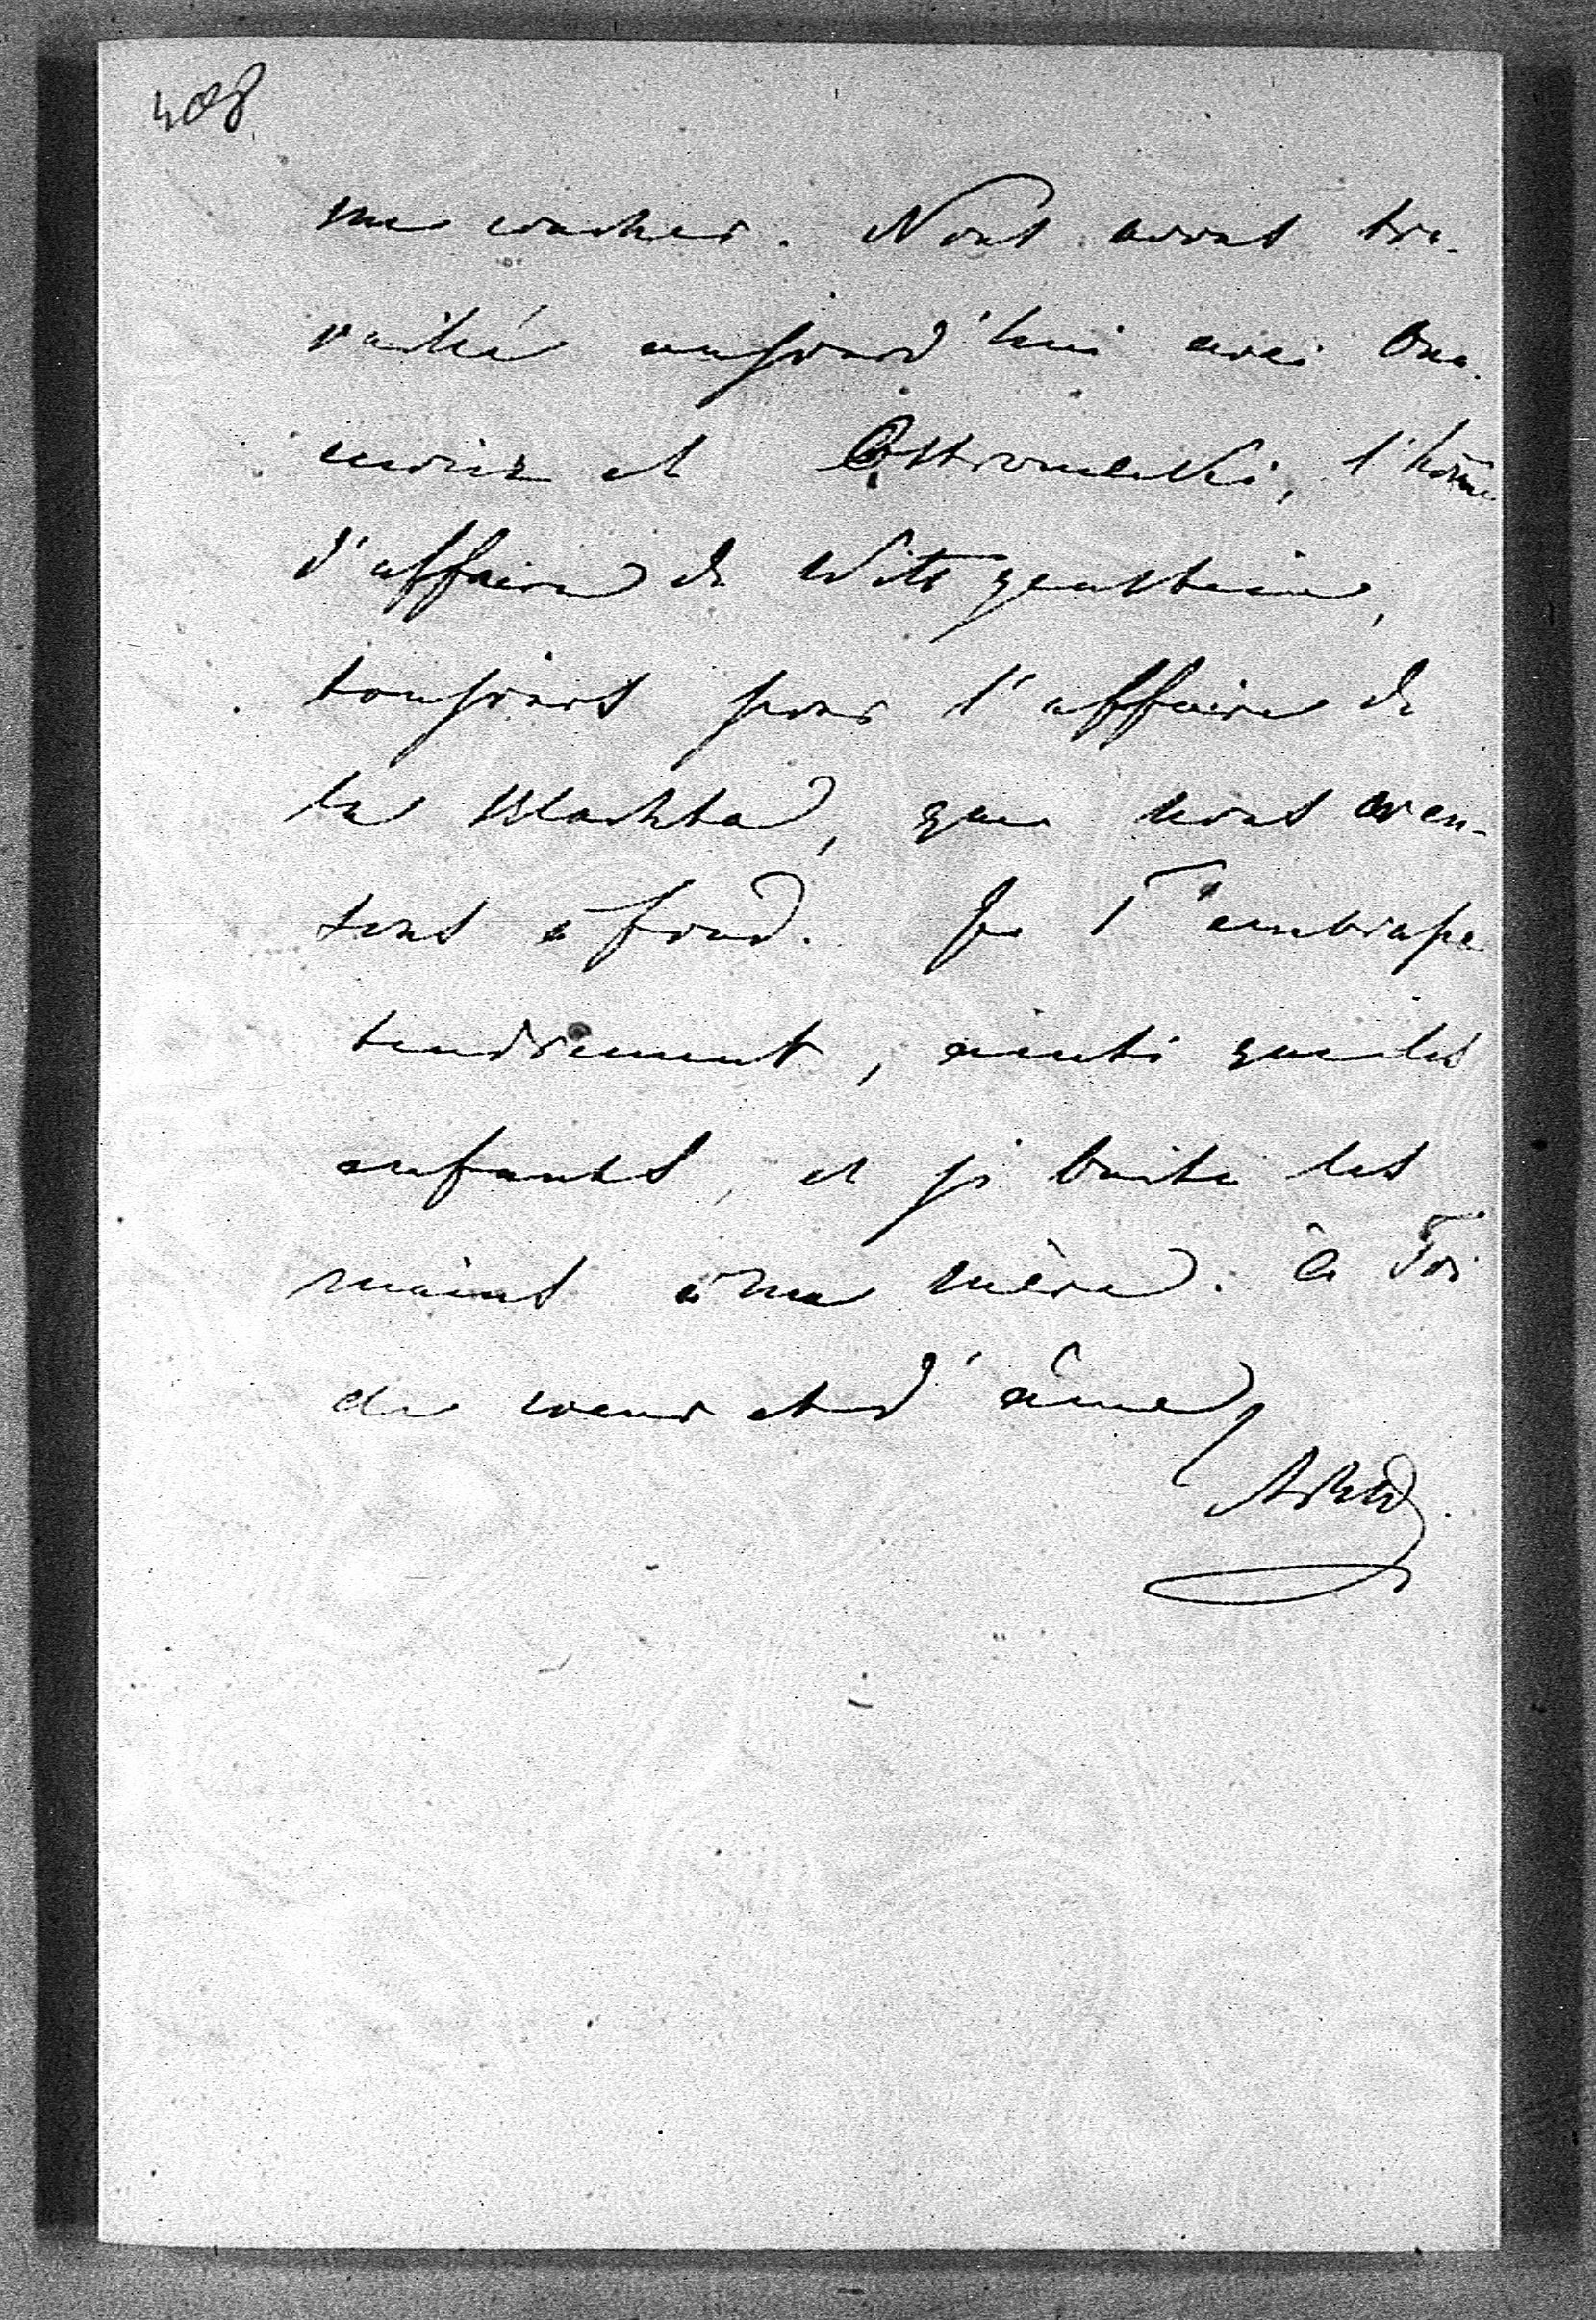 408
me coucher. Nous avons tra-
vaillé aujourd'hui avec
et l'home
d'affaires de Wittgenstein,
toujours pour l'affaire de
la que nous
à fond. Je T'embrasse
tendrement, ainsi que les
enfants, et je baise les
mains à ma mère. à Toi
de coeur et d'âme